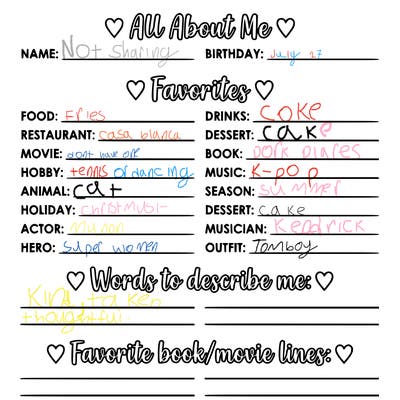 ♡ All About Me ♡
NAME: Not sharing BIRTHDAY: July 27
♡ Favorites ♡
FOOD: Fries DRINKS: COKe
RESTAURANT: casa blanca DESSERT: cake
MOVIE: dont have one BOOK: Dork Diares
HOBBY: tennis or dancing MUSIC: K-pop
ANIMAL: cat SEASON: summer
HOLIDAY: christmust DESSERT: cake
ACTOR: MUSICIAN: Kendrick
HERO: super women OUTFIT: Tomboy
♡ Words to describe me: ♡
Kind, taken
thoughtful
♡ Favorite book/movie lines: ♡